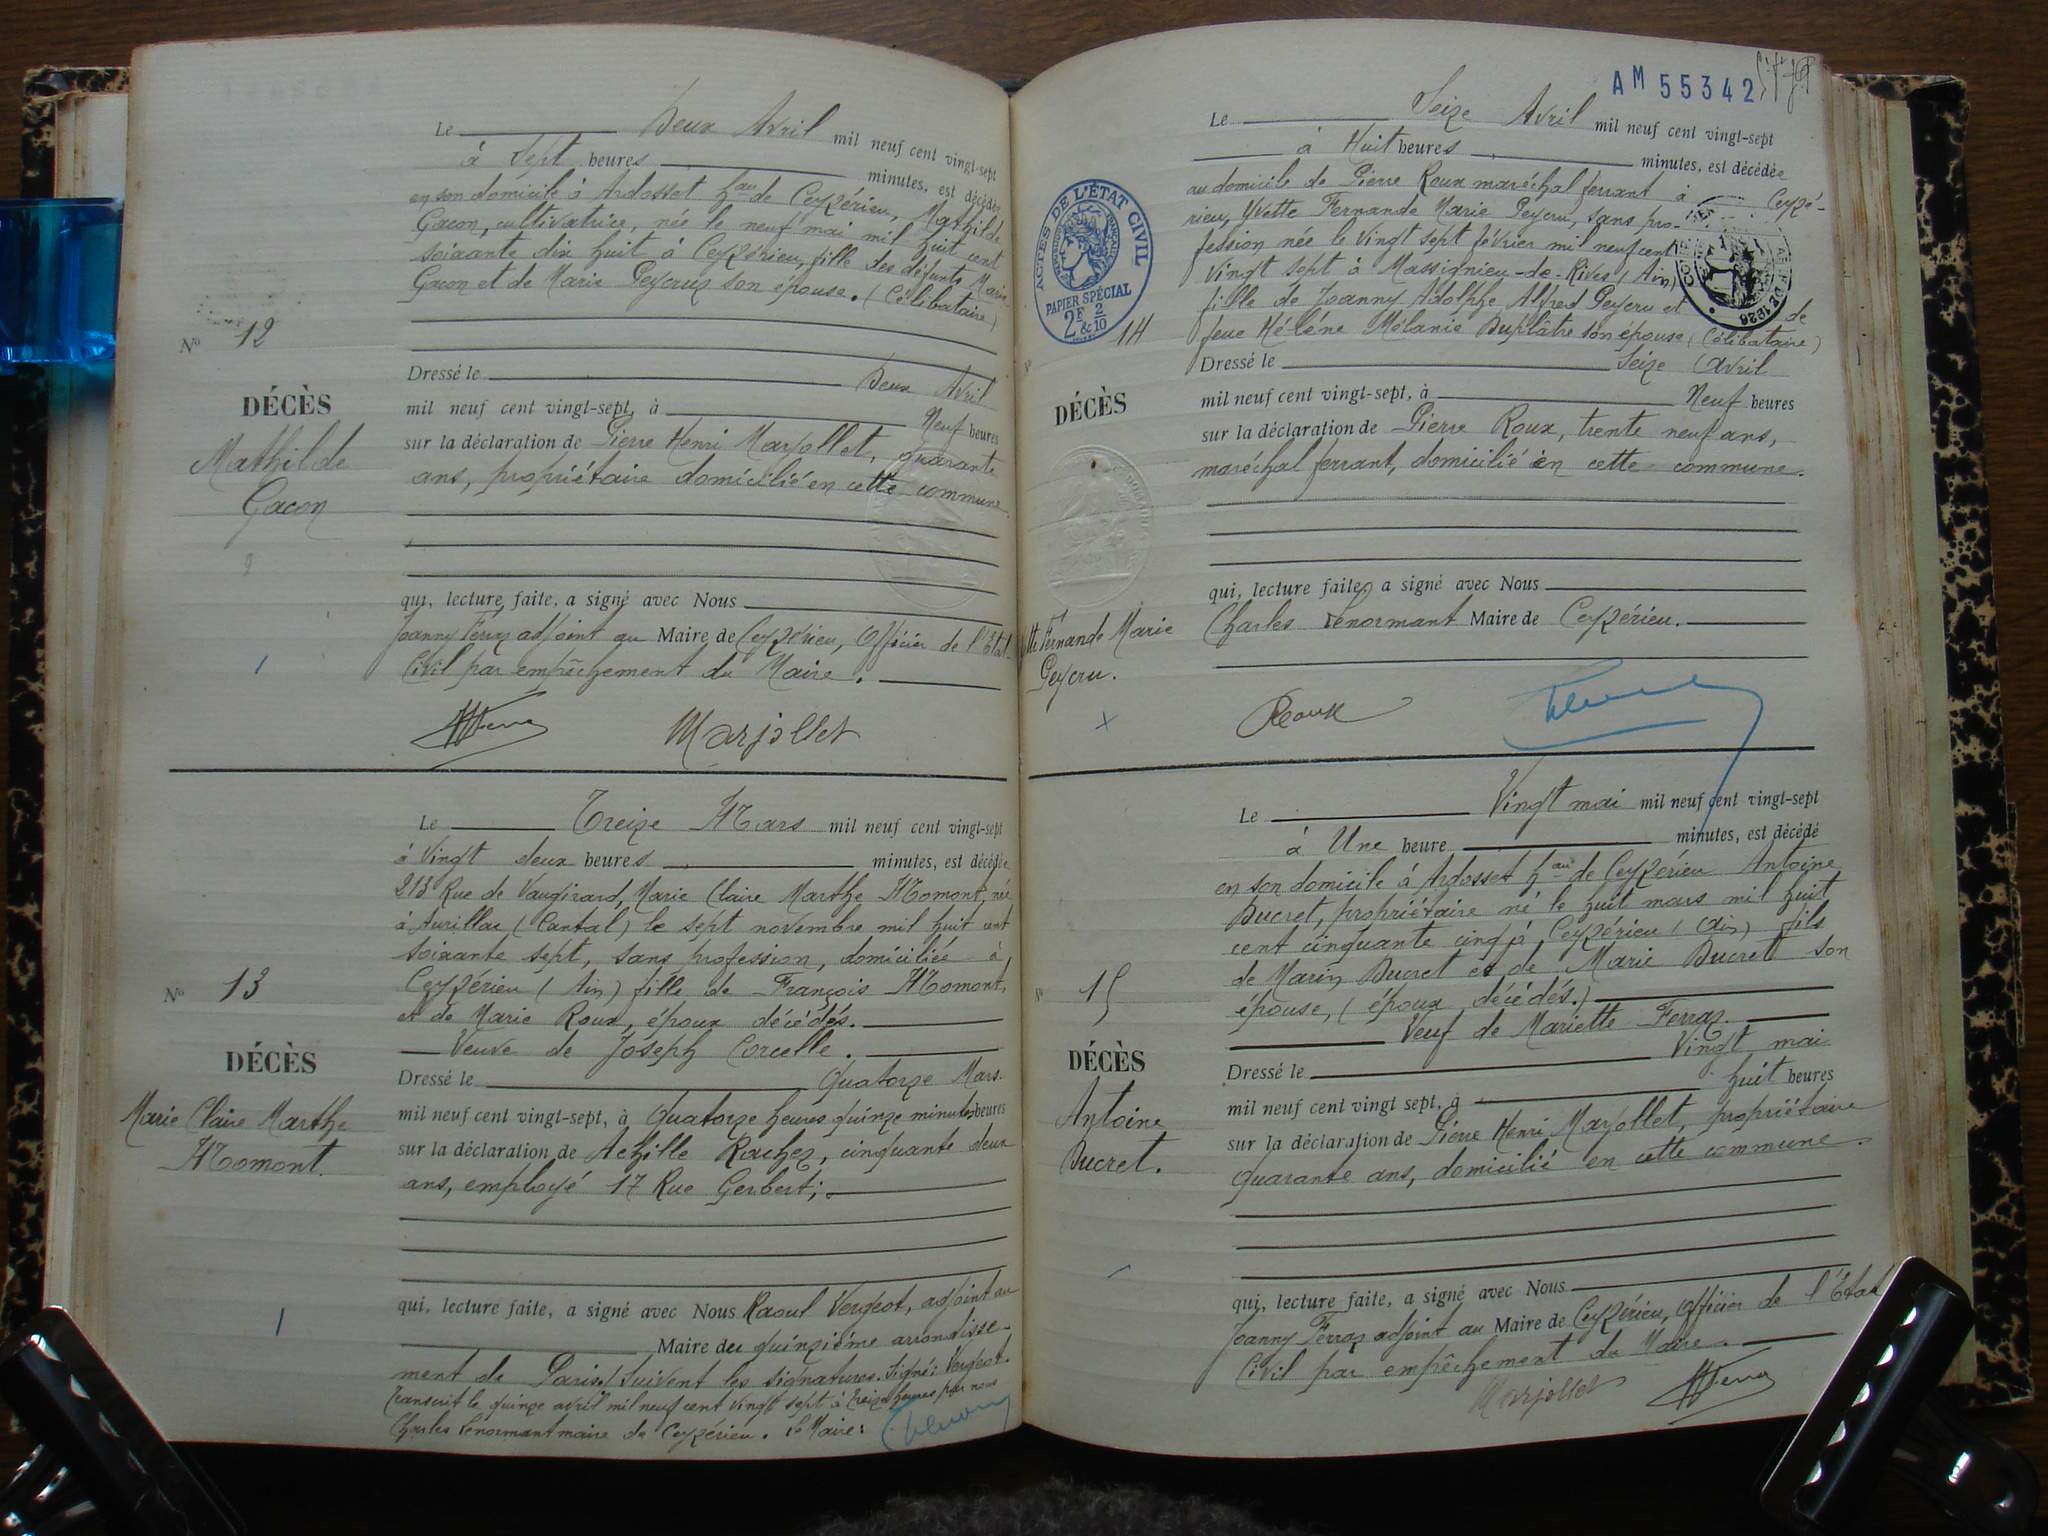 Le Deux Avril mil neuf cent vingt-sept
à Sept heures minutes, est décédée
en son domicile à Ardosset hau de Ceyzérieu, Mathilde
Gacon, cultivatrice, née le neuf mai mil huit cent
soixante dix huit à Ceyzérieu, fille des défunts Marin
Gacon et de Marie Peycruz son épouse. (Célibataire)
No 12
Dressé le Deux Avril
DÉCÈS
mil neuf cent vingt-sept, à Neuf heures
Mathilde
Gacon
sur la déclaration de Pierre Henri Marjollet, quarante
ans, propriétaire domicilié en cette commune
qui, lecture faite, a signé avec Nous
Joanny Ferraz adjoint au Maire de Ceyzérieu, Officier de l'Etat-
Civil par empêchement du Maire.
Marjollet
Le Treize Mars mil neuf cent vingt-sept
à Vingt deux heures minutes, est décédée
213 Rue de Vaugirard, Marie Claire Marthe Momont, née
à Aurillac (Cantal) le sept novembre mil huit cent
soixante sept, sans profession, domiciliée à
Ceyzérieu (Ain) fille de François Momont,
et de Marie Roux, époux décédés.
Veuve de Joseph Corcelle.
No 13
DÉCÈS
Marie Claire Marthe
Momont.
Dressé le Quatorze Mars
mil neuf cent vingt-sept, à Quatorze heures quinze minutes heures
sur la déclaration de Achille Rachez, cinquante deux
ans, employé 17 Rue Gerbert;
qui, lecture faite, a signé avec Nous Raoul Vergeot, adjoint au
Maire du quinzième arrondisse-
ment de Paris. Suivent les signatures. Signé: Vergeot.
Transcrit le quinze avril mil neuf cent vingt sept à treize heures par nous
Charles Lenormant maire de Ceyzérieu. Le Maire:
AM 55342
Le Seize Avril mil neuf cent vingt-sept
à Huit heures minutes, est décédée
au domicile de Pierre Roux maréchal ferrant à Ceyzé-
rieu, Yvette Fernande Marie Peycru, sans pro-
fession, née le vingt sept février mil neuf cent
vingt sept à Massignieu-de-Rives (Ain)
fille de Joanny Adolphe Alfred Peycru et de
feue Hélène Mélanie Duplâtre son épouse (Célibataire)
ACTES DE L'ÉTAT CIVIL
PAPIER SPÉCIAL
2F &2/10
14
DÉCÈS
Dressé le Seize Avril
mil neuf cent vingt-sept, à Neuf heures
sur la déclaration de Pierre Roux, trente neuf ans,
maréchal ferrant, domicilié en cette commune.
qui, lecture faite, a signé avec Nous
Fernande Marie
Peycru.
Charles Lenormant Maire de Ceyzérieu.
Roux
Le Vingt mai mil neuf cent vingt-sept
à Une heure minutes, est décédé
en son domicile à Ardosset hau de Ceyzérieu Antoine
Ducret, propriétaire né le huit mars mil huit
cent cinquante cinq à Ceyzérieu (Ain) fils
de Marin Ducret et de Marie Ducrett son
épouse, (époux décédés.)
Veuf de Mariette Ferraz.
No 15
DÉCÈS
Antoine
Ducret.
Dressé le Vingt mai
mil neuf cent vingt sept, à huit heures
sur la déclaration de Pierre Henri Marjollet, propriétaire
quarante ans, domicilié en cette commune.
qui, lecture faite, a signé avec Nous
Joanny Ferraz adjoint au Maire de Ceyzérieu, Officier de l'Etat
Civil par empêchement du Maire.
Marjollet